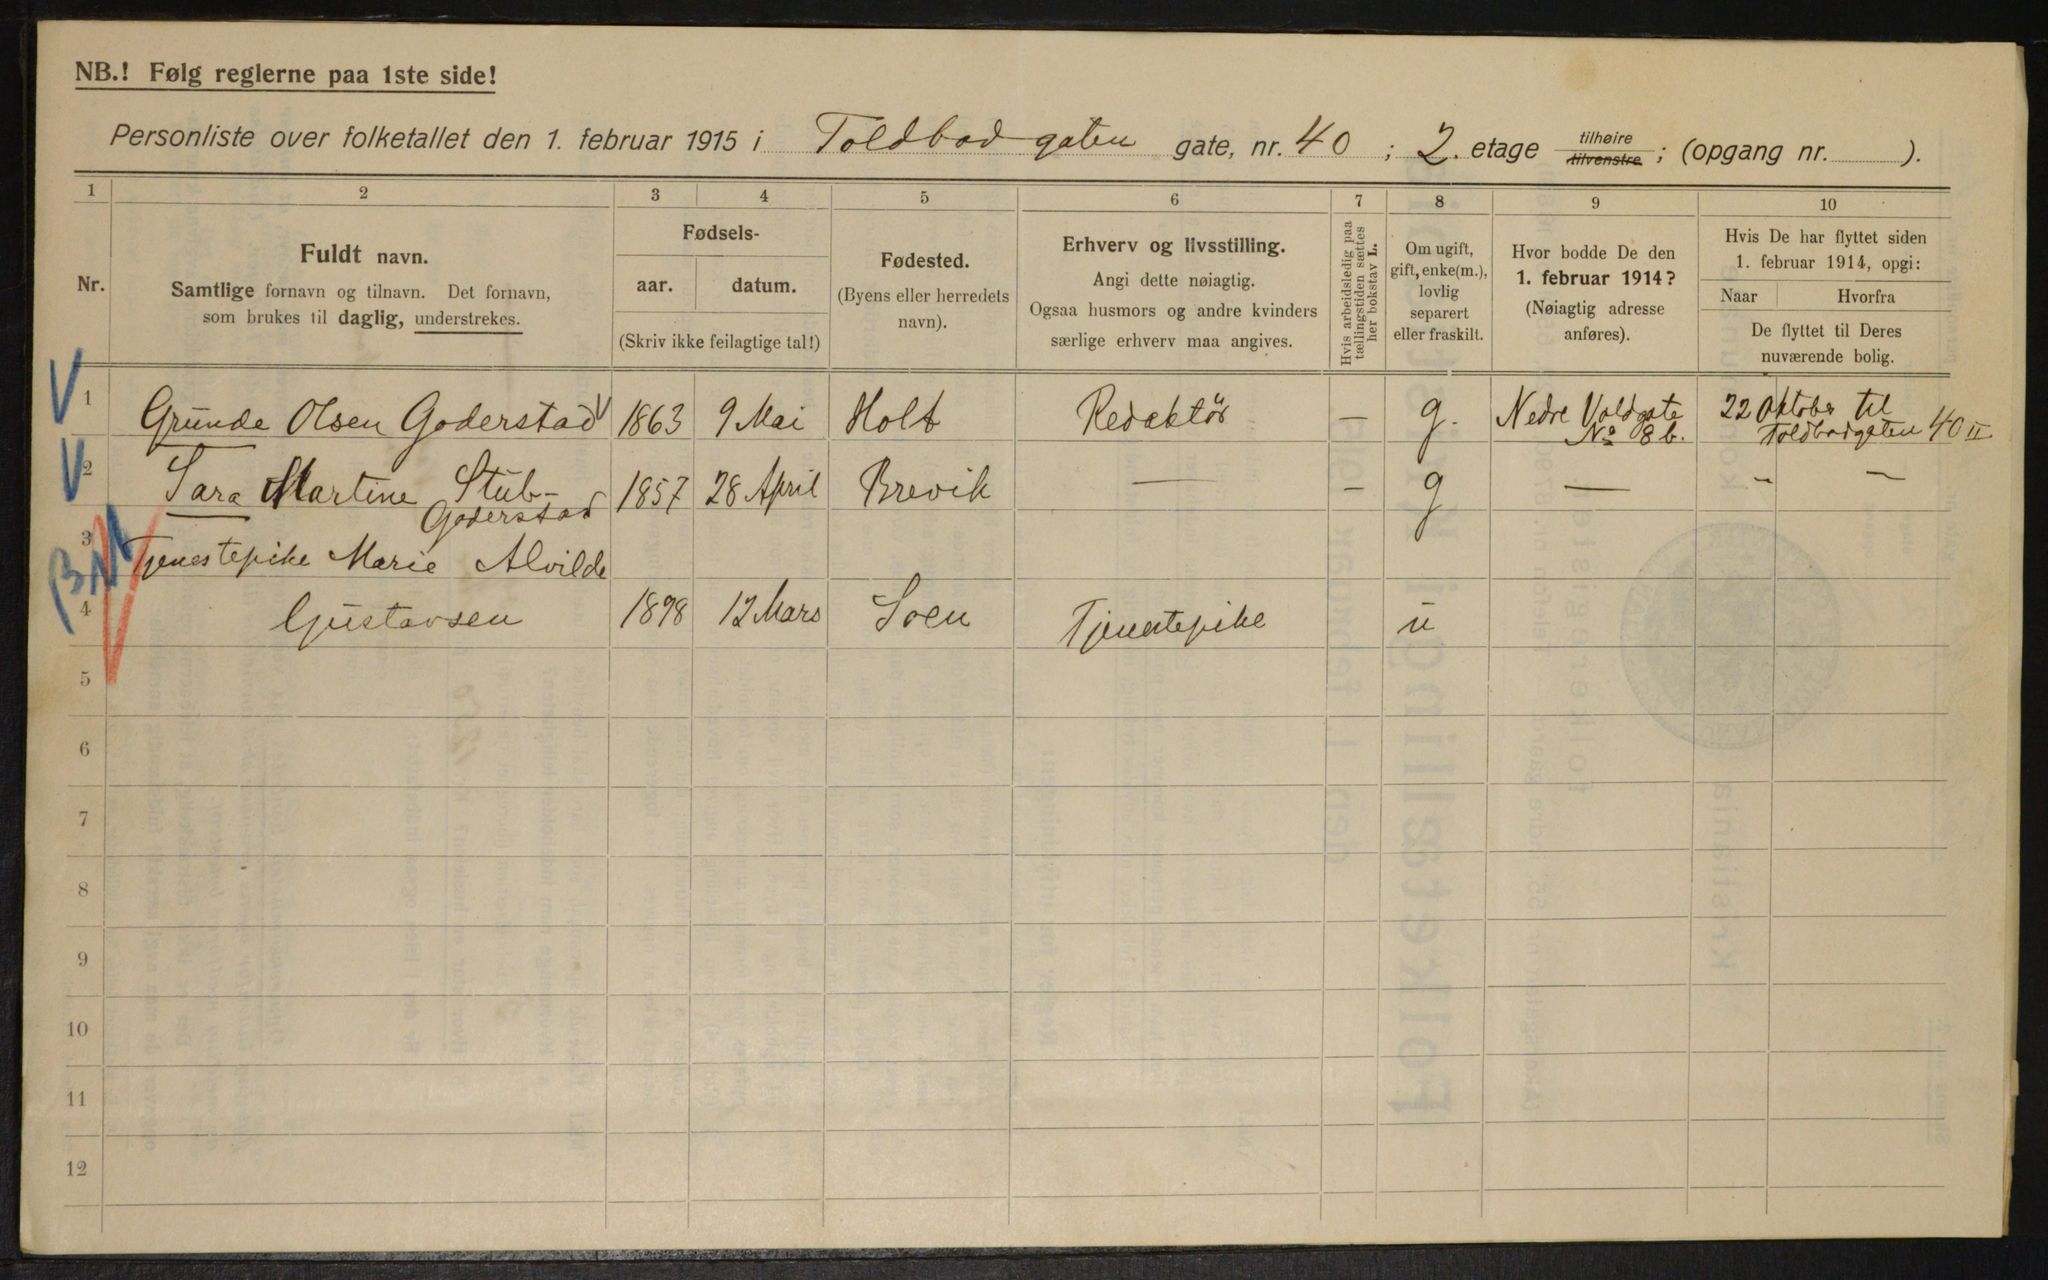 NB.! Følg reglerne paa 1ste side!
Personliste over folketallet den 1. februar 1915 i Toldbodgaten gate, nr. 40 ; 2. etage tilhøire tilvenstre ; (opgang nr. ).
1 2 3 4 5 6 7 8 9 10
Nr.
Fuldt navn.
Samtlige fornavn og tilnavn. Det fornavn,
som brukes til daglig, understrekes.
Fødsels-
aar. datum.
(Skriv ikke feilagtige tal!)
Fødested.
(Byens eller herredets
navn).
Erhverv og livsstilling.
Angi dette nøiagtig.
Ogsaa husmors og andre kvinders
særlige erhverv maa angives.
Hvis arbeidsledig paa
tællingstiden sættes
her bokstav L.
Om ugift,
gift, enke(m.),
lovlig
separert
eller fraskilt.
Hvor bodde De den
1. februar 1914?
(Nøiagtig adresse
anføres).
Hvis De har flyttet siden
1. februar 1914, opgi:
Naar Hvorfra
De flyttet til Deres
nuværende bolig.
1 Grunde Olsen Goderstad 1863 9 Mai Holt Redaktør — g. Nedre Voldgate 22 Oktober til
No 8 b. Toldbodgaten 40 II
2 Sara Martine Stub- 1857 28 April Brevik — – g — – –
Goderstad
3 Tjenestepike Marie Alvilde
4 Gustavsen 1898 12 Mars Tjenestepike u
5
6
7
8
9
10
11
12